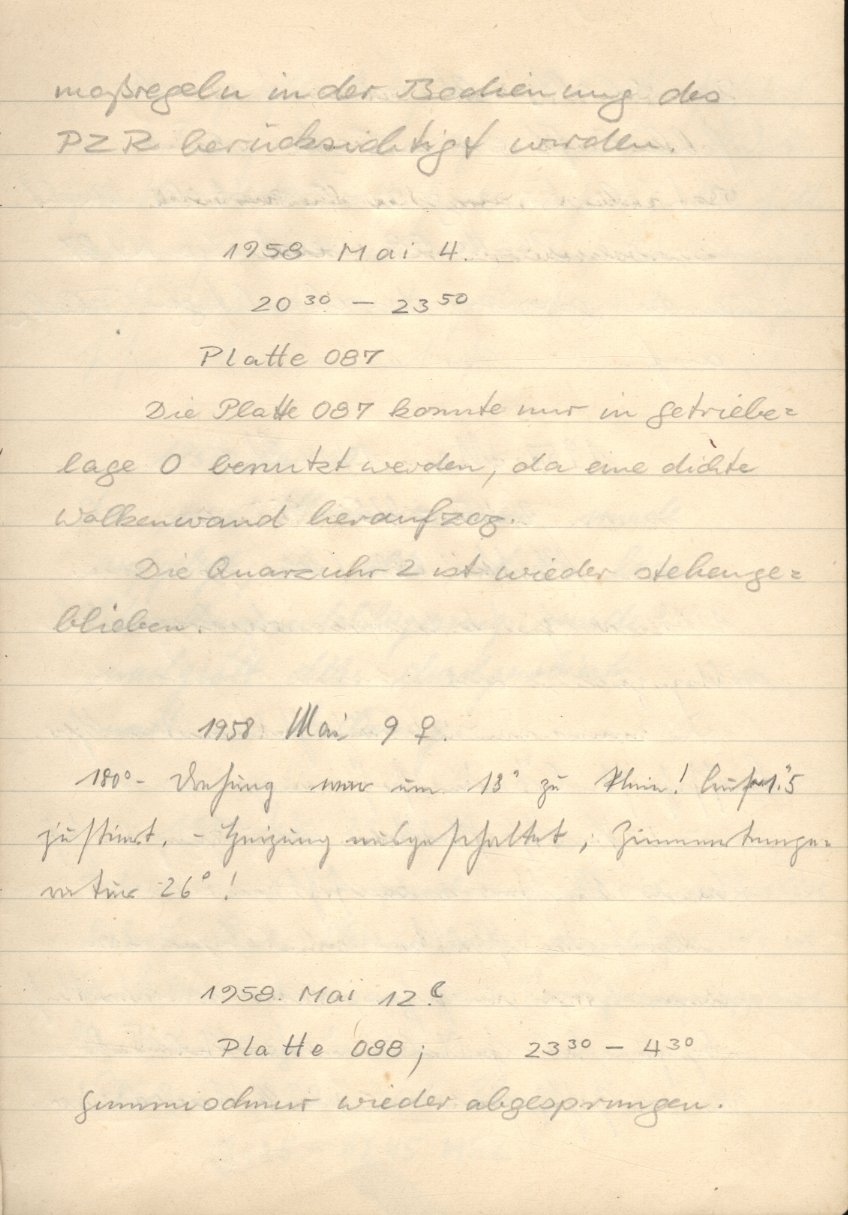 maßregeln in der Bedienung des
PZR berücksichtigt werden.
1958 Mai 4.
20 30 — 23 50
Platte 087
Die Platte 087 konnte nur in Getriebe=
lage 0 benutzt werden, da eine dichte
Wolkenwand heraufzog.
Die Quarzuhr 2 ist wieder stehenge=
blieben.
1958 Mai 9 ♀.
180°- Drehung war um 13" zu klein! Auf 1."5
justiert. – Heizung ausgeschaltet; Zimmertempe=
ratur 26°!
1958. Mai 12. ☾
Platte 088; 23 30 — 4 30
Gummischnur wieder abgesprungen.